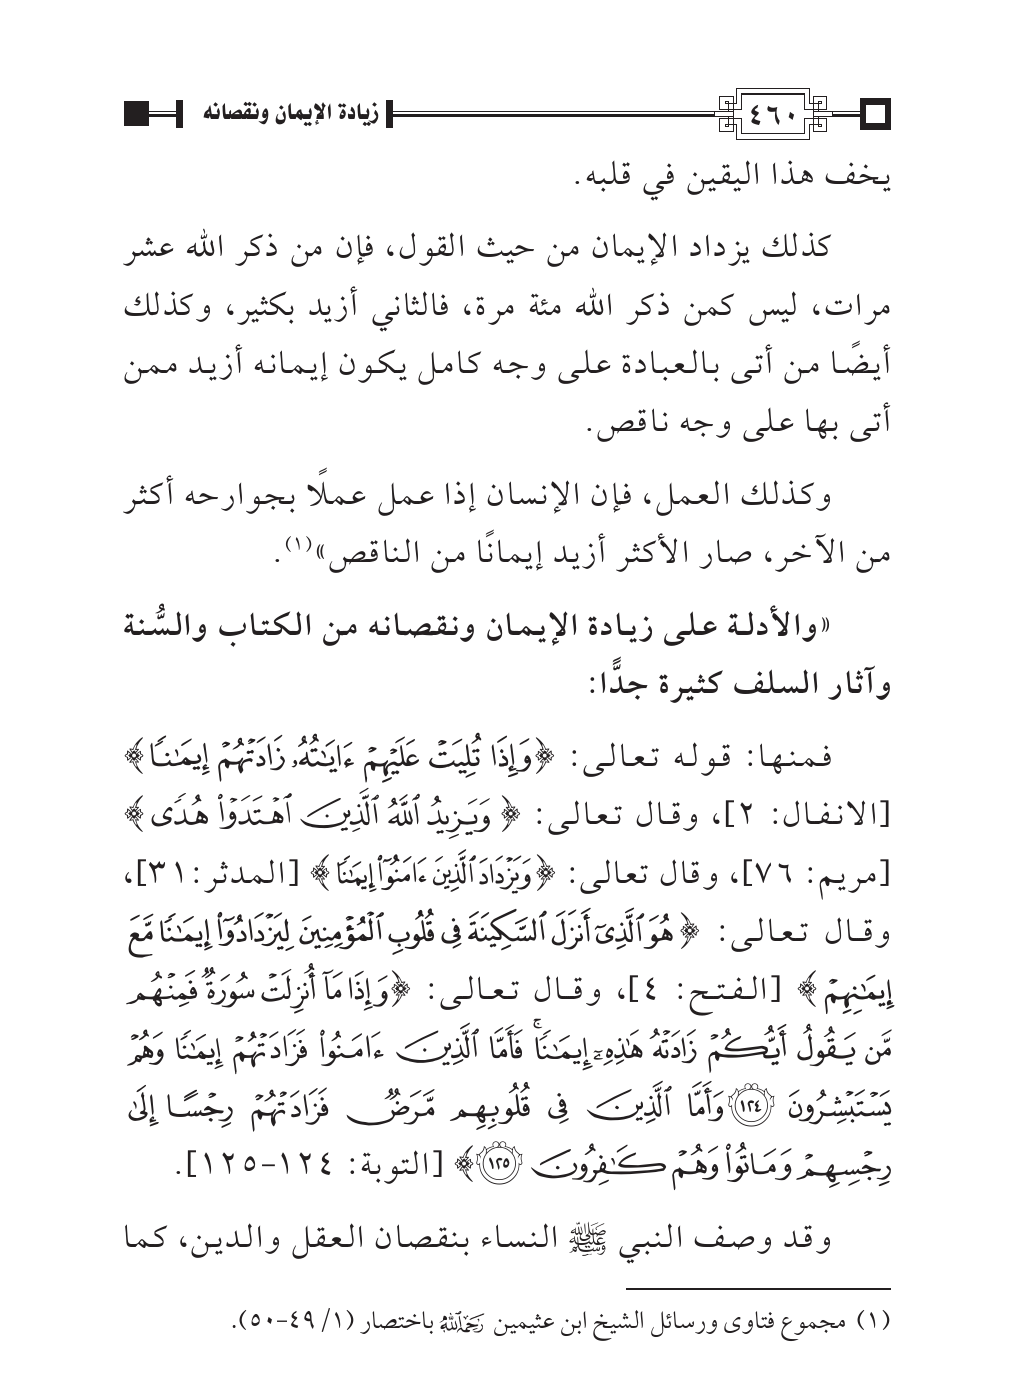 ٤٦٠ زيادة الإيمان ونقصانه
يخف هذا اليقين في قلبه.
كذلك يزداد الإيمان من حيث القول، فإن من ذكر الله عشر
مرات، ليس كمن ذكر الله مئة مرة، فالثاني أزيد بكثير، وكذلك
أيضًا من أتى بالعبادة على وجه كامل يكون إيمانه أزيد ممن
أتى بها على وجه ناقص.
وكذلك العمل، فإن الإنسان إذا عمل عملًا بجوارحه أكثر
من الآخر، صار الأكثر أزيد إيمانًا من الناقص»(١).
«والأدلة على زيادة الإيمان ونقصانه من الكتاب والسُّنة
وآثار السلف كثيرة جدًّا:
فمنها: قوله تعالى: ﴿وَإِذَا تُلِيَتْ عَلَيْهِمْ ءَايَٰتُهُۥ زَادَتْهُمْ إِيمَٰنًا﴾
[الانفال: ٢]، وقال تعالى: ﴿وَيَزِيدُ ٱللَّهُ ٱلَّذِينَ ٱهْتَدَوْا۟ هُدًى﴾
[مريم: ٧٦]، وقال تعالى: ﴿وَيَزْدَادَ ٱلَّذِينَ ءَامَنُوٓا۟ إِيمَٰنًا﴾ [المدثر: ٣١]،
وقال تعالى: ﴿هُوَ ٱلَّذِىٓ أَنزَلَ ٱلسَّكِينَةَ فِى قُلُوبِ ٱلْمُؤْمِنِينَ لِيَزْدَادُوٓا۟ إِيمَٰنًا مَّعَ
إِيمَٰنِهِمْ﴾ [الفتح: ٤]، وقال تعالى: ﴿وَإِذَا مَآ أُنزِلَتْ سُورَةٌ فَمِنْهُم
مَّن يَقُولُ أَيُّكُمْ زَادَتْهُ هَٰذِهِۦٓ إِيمَٰنًا ۚ فَأَمَّا ٱلَّذِينَ ءَامَنُوا۟ فَزَادَتْهُمْ إِيمَٰنًا وَهُمْ
يَسْتَبْشِرُونَ ١٢٤ وَأَمَّا ٱلَّذِينَ فِى قُلُوبِهِم مَّرَضٌ فَزَادَتْهُمْ رِجْسًا إِلَىٰ
رِجْسِهِمْ وَمَاتُوا۟ وَهُمْ كَٰفِرُونَ ١٢٥﴾ [التوبة: ١٢٤-١٢٥].
وقد وصف النبي ﷺ النساء بنقصان العقل والدين، كما
(١) مجموع فتاوى ورسائل الشيخ ابن عثيمين رحمه الله باختصار (١/ ٤٩-٥٠).